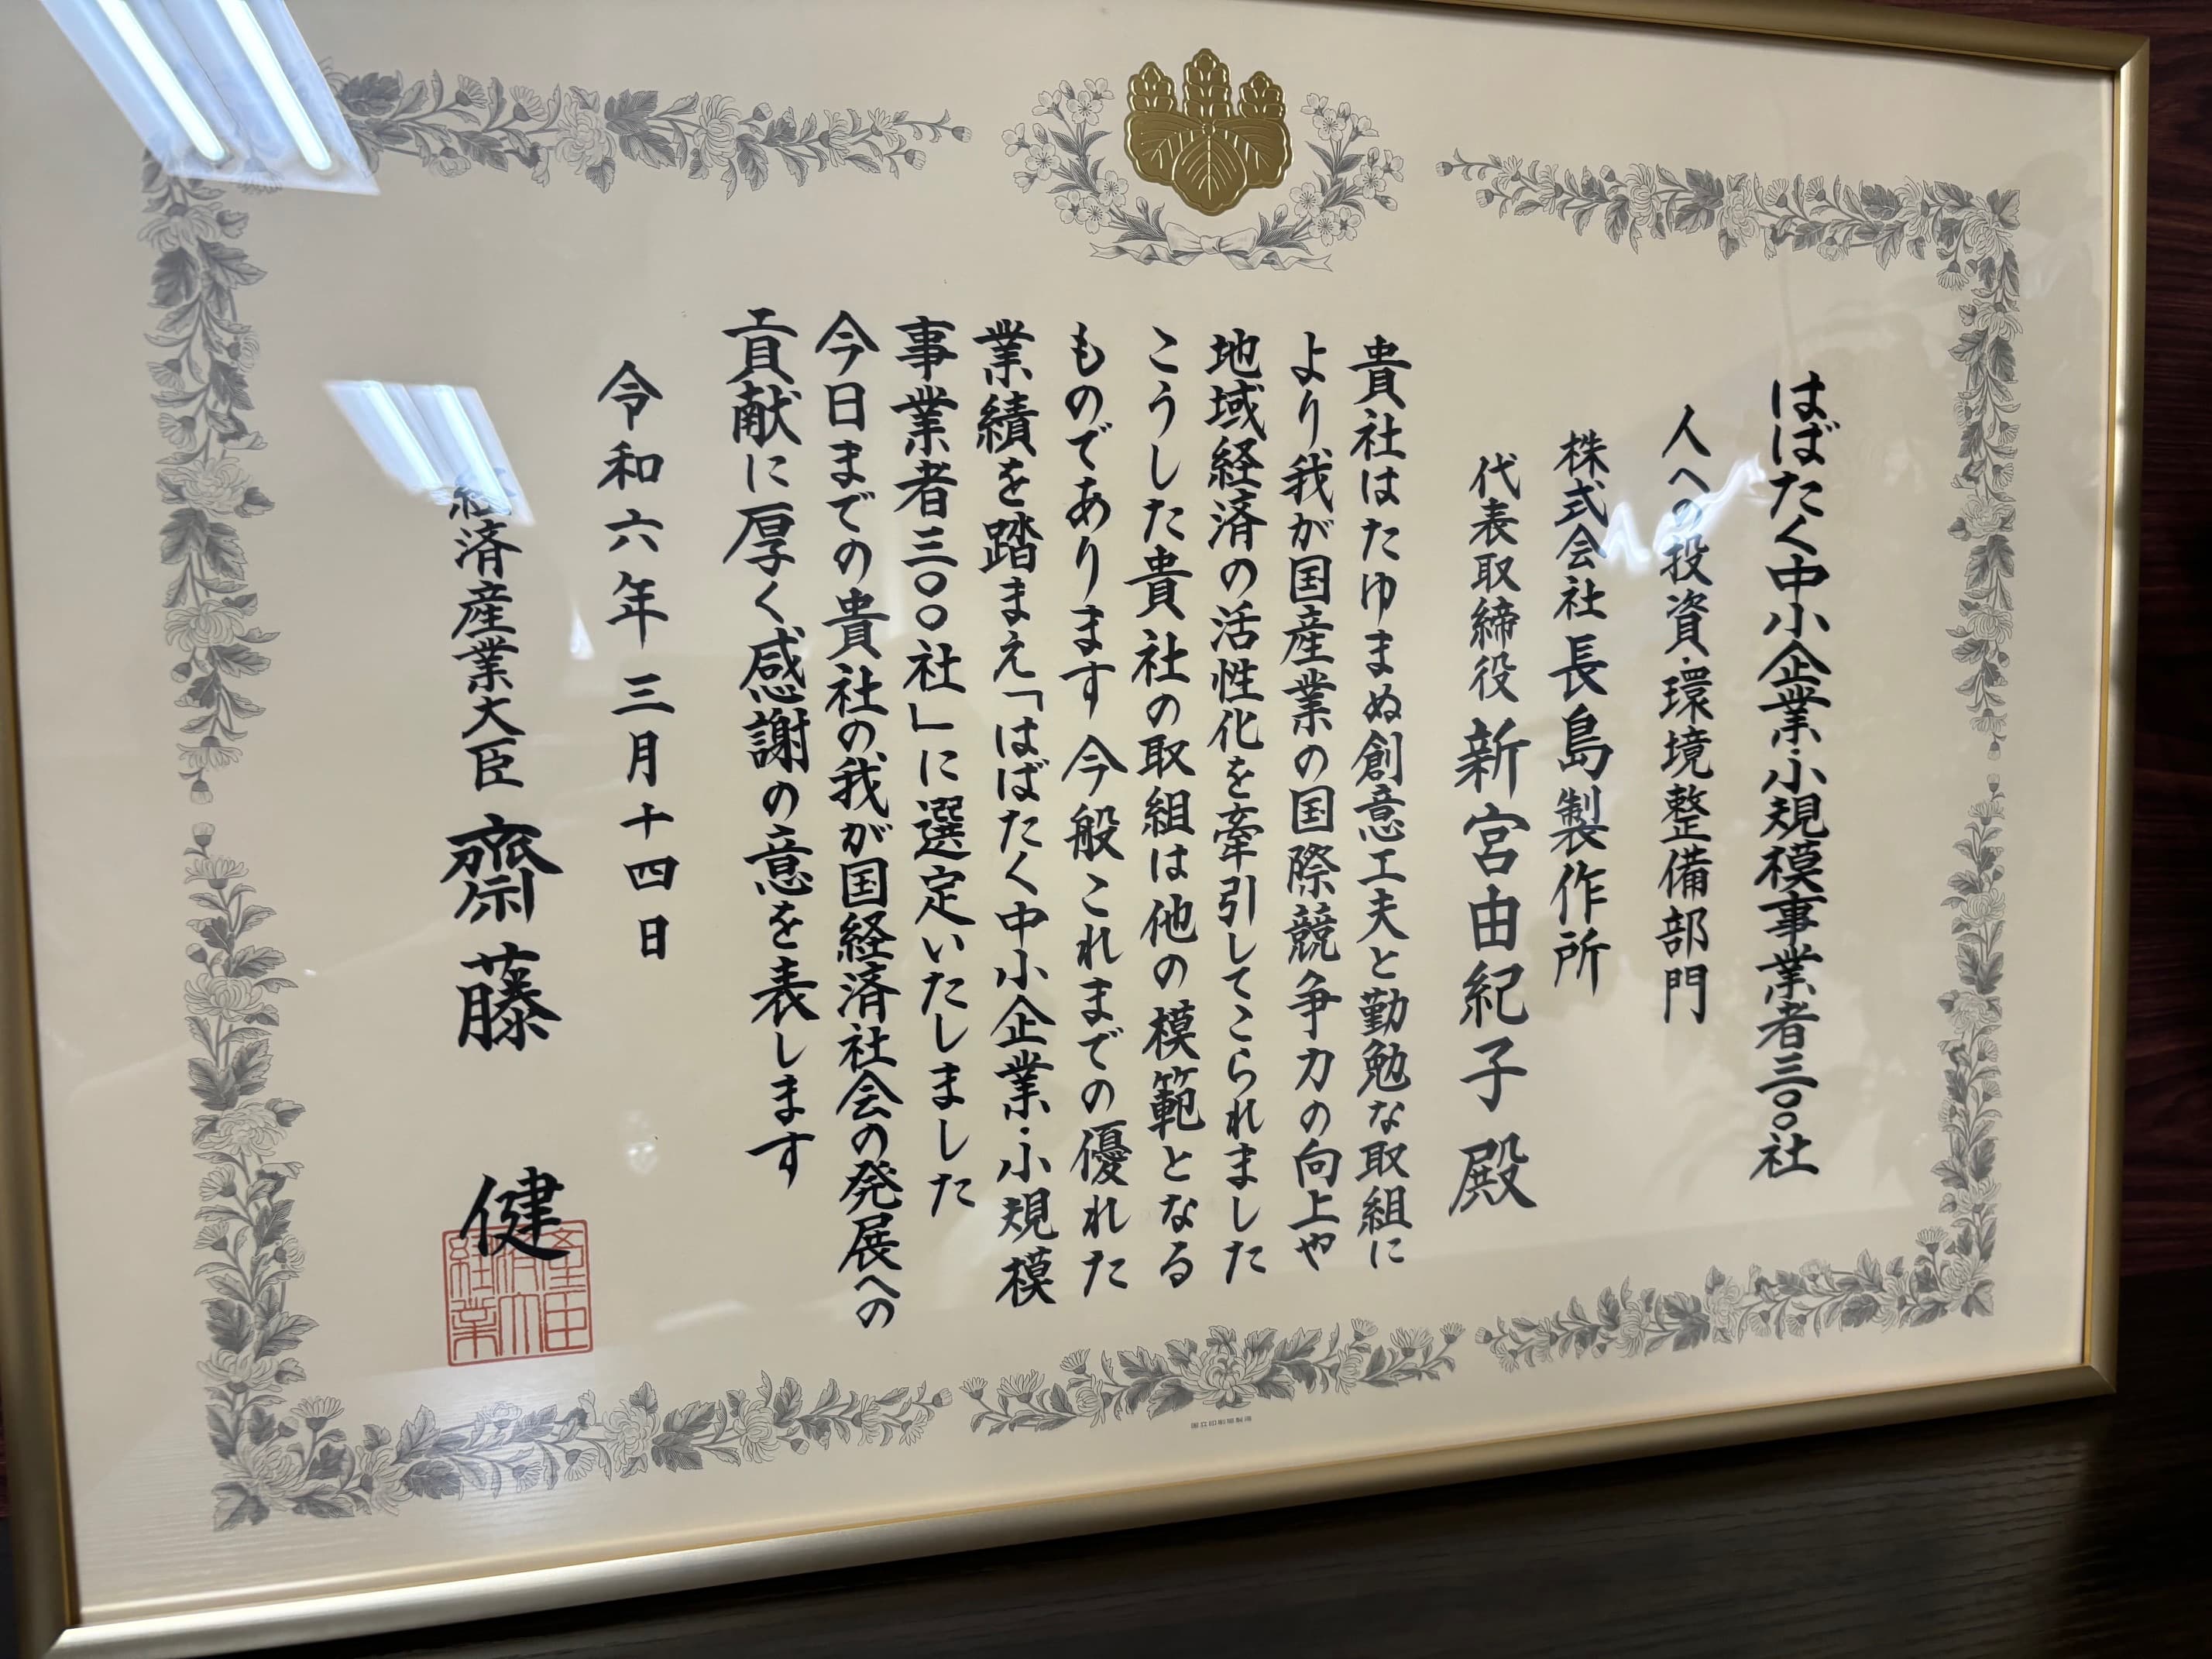 はばたく中小企業・小規模事業者三〇〇社
人への投資・環境整備部門
株式会社長島製作所
代表取締役 新宮由紀子 殿
貴社はたゆまぬ創意工夫と勤勉な取組に
より我が国産業の国際競争力の向上や
地域経済の活性化を牽引してこられました
こうした貴社の取組は他の模範となる
ものであります 今般これまでの優れた
業績を踏まえ「はばたく中小企業・小規模
事業者三〇〇社」に選定いたしました
今日までの貴社の我が国経済社会の発展への
貢献に厚く感謝の意を表します
令和六年三月十四日
経済産業大臣 齋藤 健
国立印刷局製造